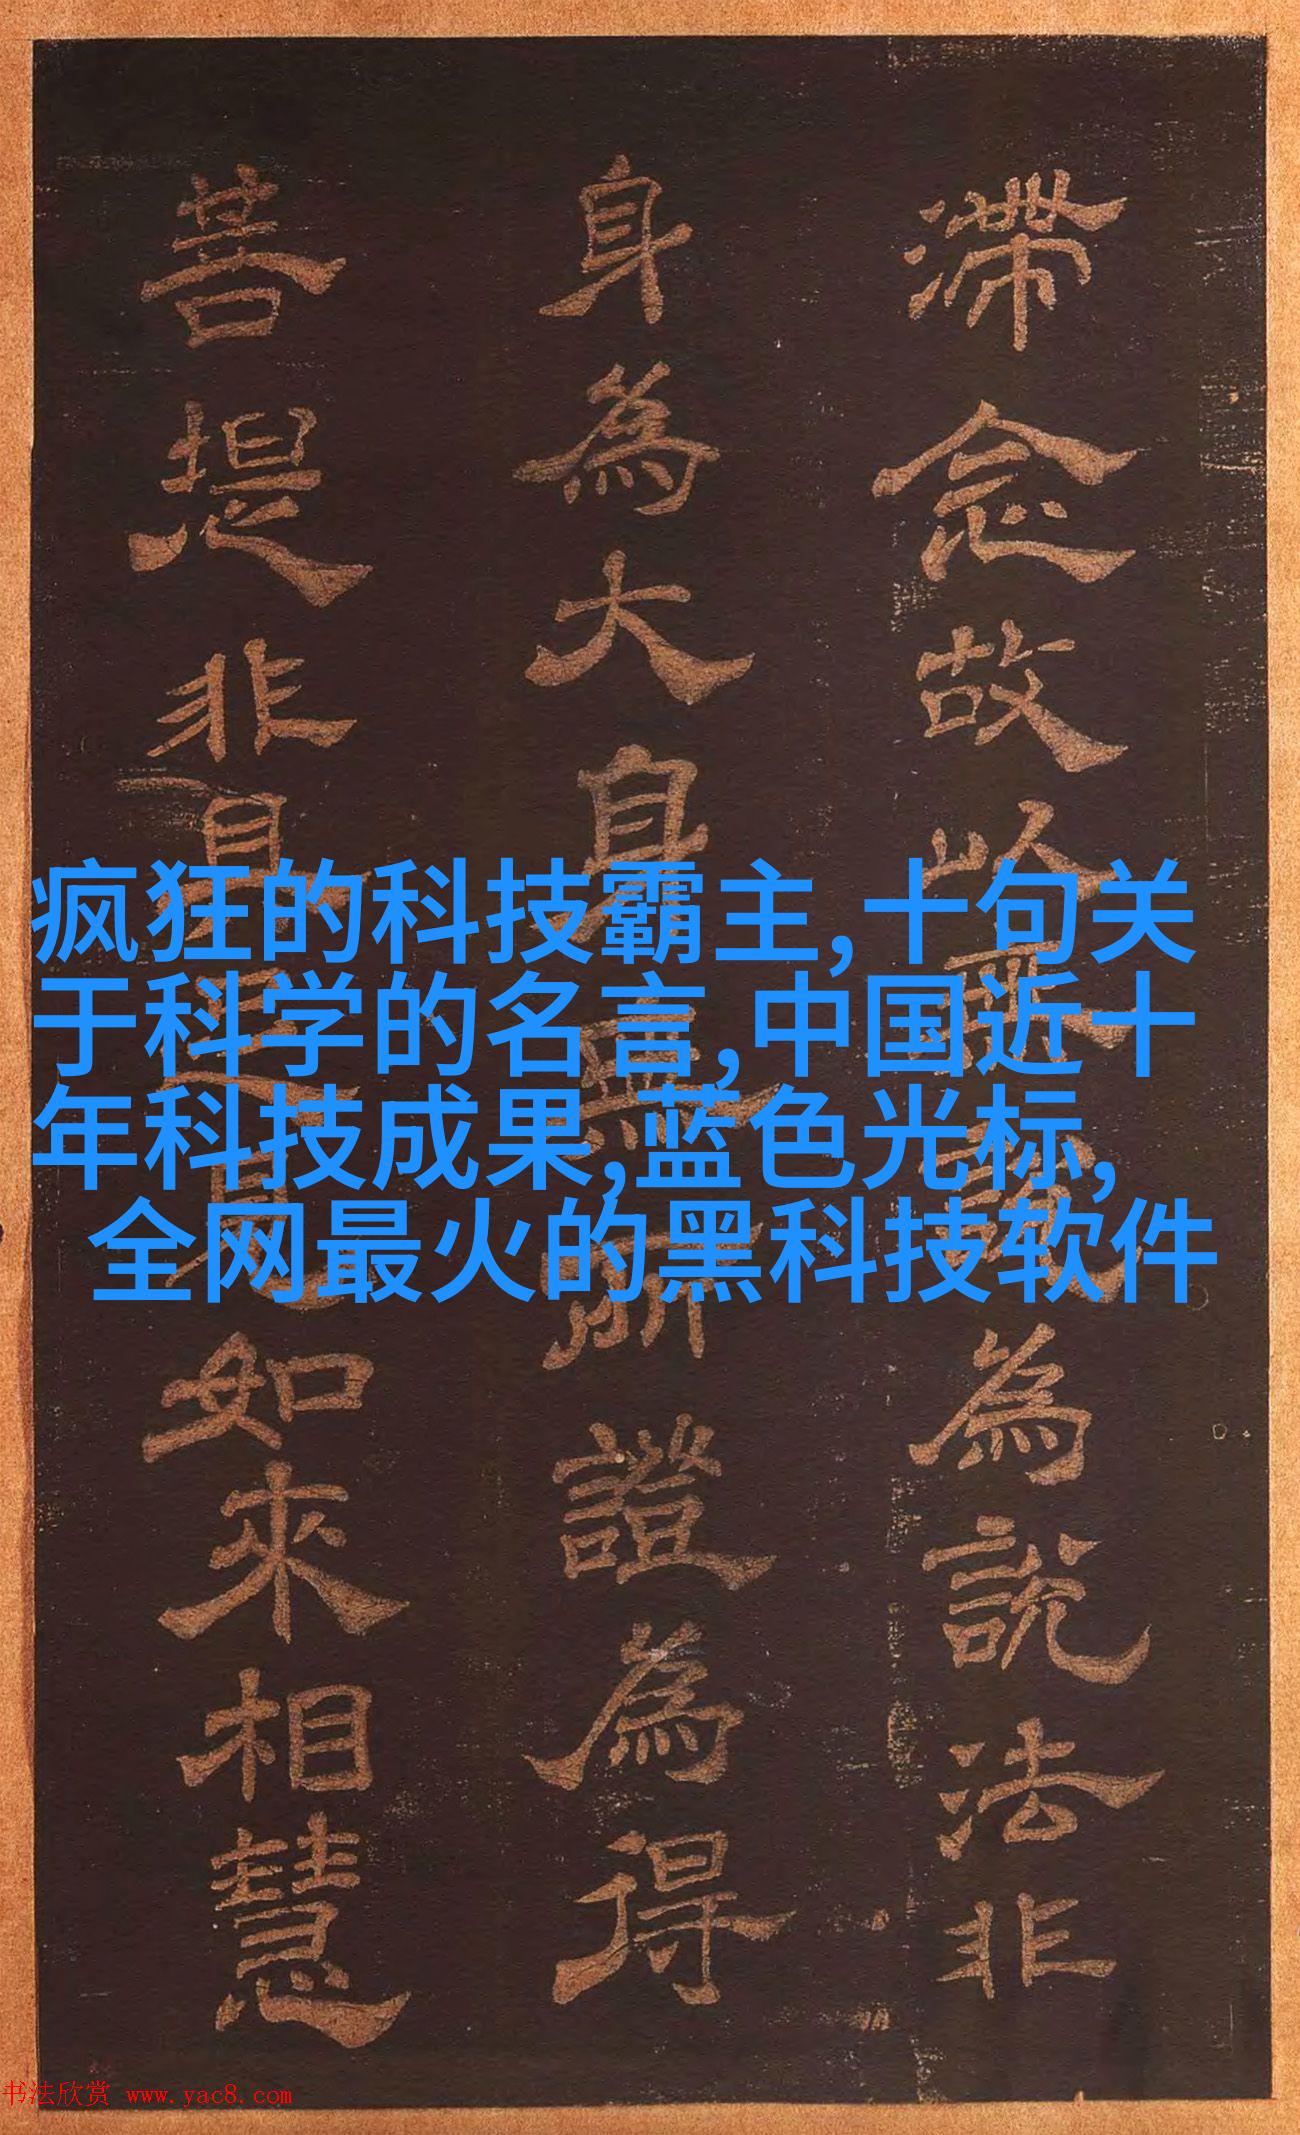 滯念故無說為說法非
身為大身無所證為得
菩提非具足見如來相慧
疯狂的科技霸主,十句关
于科学的名言,中国近十
年科技成果,蓝色光标,
全网最火的黑科技软件
书法欣赏 www.yac8.com